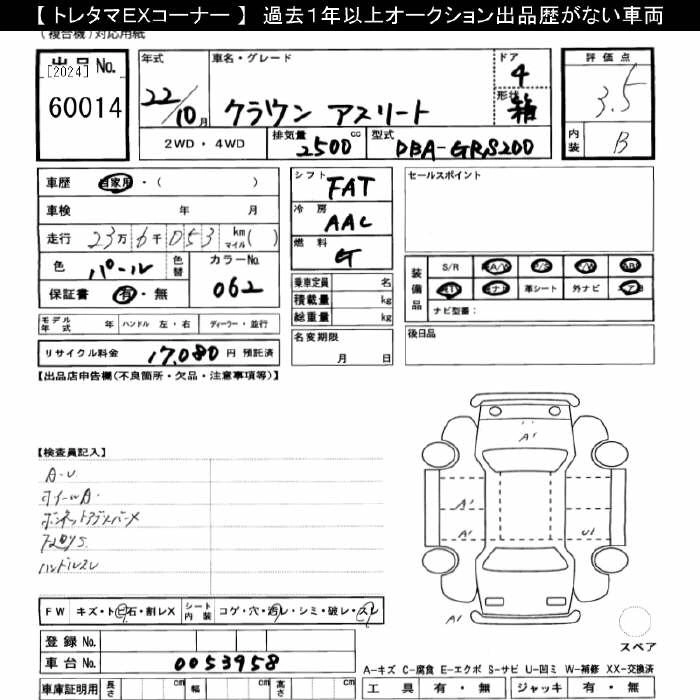 【 トレタマEXコーナー 】 過去1年以上オークション出品歴がない車両
(複合機)対応用紙
出品 No.
[2024]
60014
年式
22/10月
車名・グレード
クラウン アスリート
ドア
4
形状
箱
評価点
3.5
内装
B
2WD・4WD
排気量
2500 cc
型式
DBA-GRS200
車歴 自家用・( )
車検 年 月
走行 23万6千053 km マイル( )
色 パール
色替
カラーNo.
062
保証書 有・無
シフト FAT
冷房 AAC
燃料 G
乗車定員 名
積載量 kg
総重量 kg
名変期限
月 日
セールスポイント
装備品
S/R A/W P/S P/W
革シート 外ナビ
ナビ型番:
後日品
モデル年式 年 ハンドル 左・右 ディーラー・並行
リサイクル料金 17,080 円 預託済
【出品店申告欄(不良箇所・欠品・注意事項等)】
【検査員記入】
A・U
ホイールA・
ハンドルスレ
A1
A1
A1
U1
A1
スペア
FW キズ・トビ石・割レX シート内装 コゲ・穴・汚レ・シミ・破レ・スレ
登録 No.
車台 No. 0053958
車庫証明用 長さ cm 幅 cm 高さ cm
A-キズ C-腐食 E-エクボ S-サビ U-凹ミ W-補修 XX-交換済
工具 有・無 ジャッキ 有・無